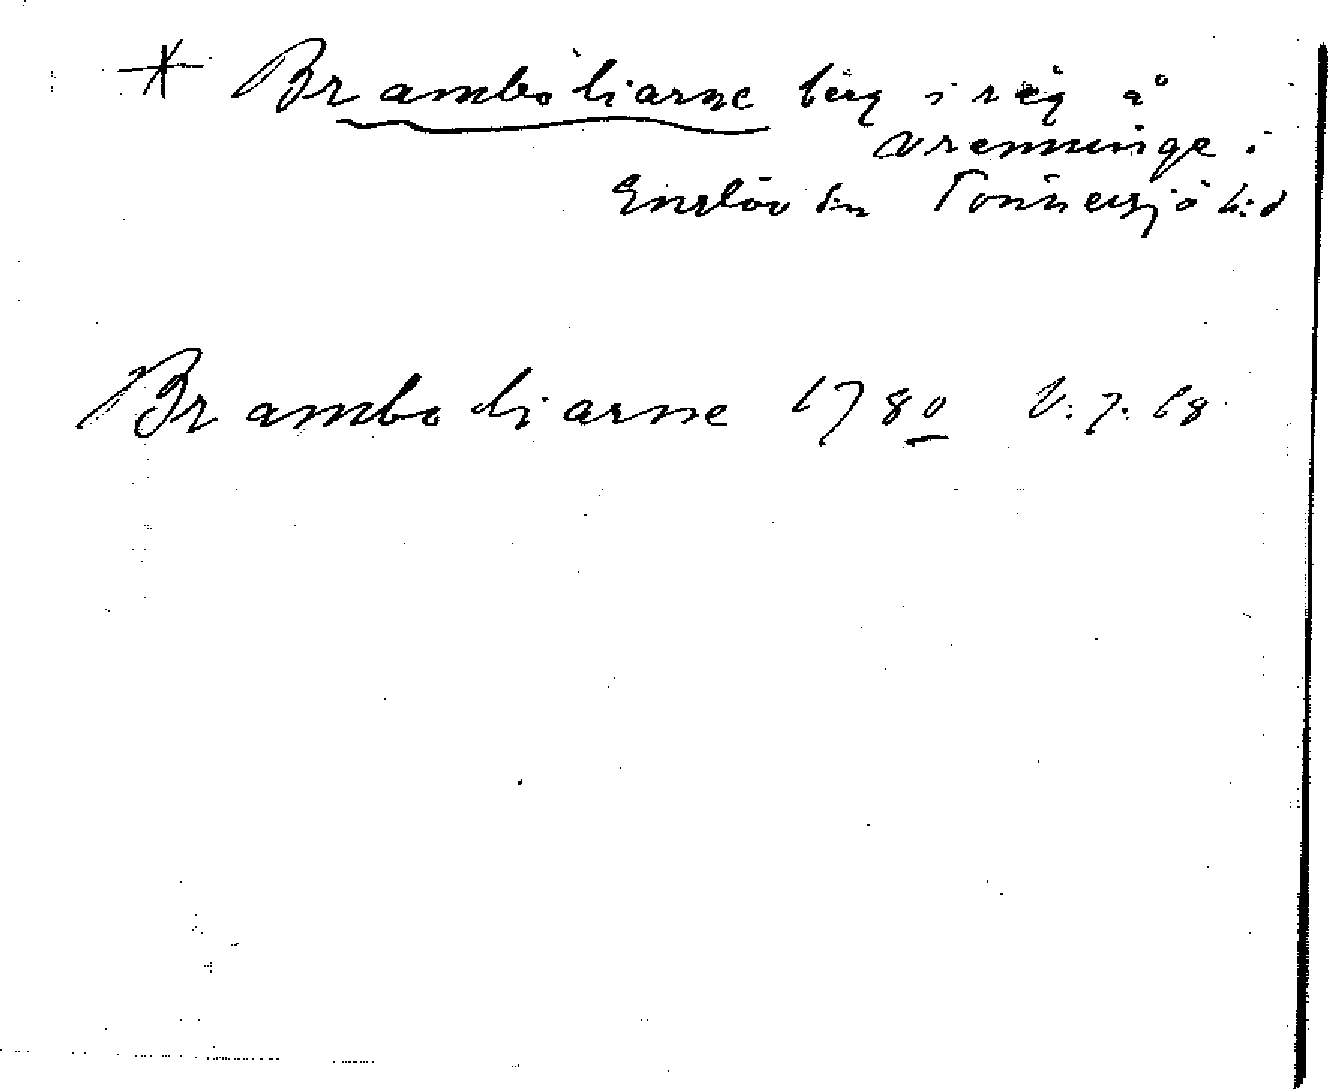 * Bramboliarne berg i väg å
Vrenninge i
Enslöv sn Tönnersjö h:d
Bramboliarne 1780 V. 7. 68